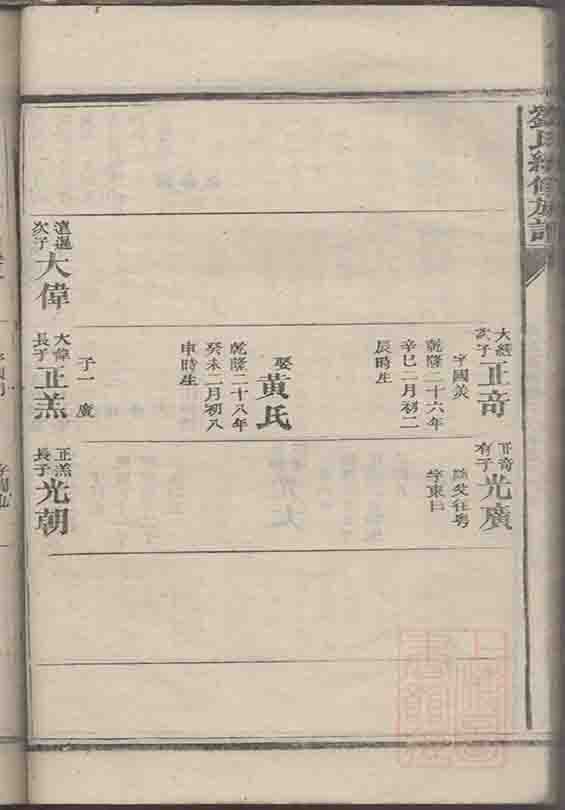 劉氏續修族譜
大經
次子
正奇
字國美
乾隆二十六年
辛巳二月初二
辰時生
娶
黃氏
乾隆二十八年
癸未二月初八
申時生
子一
廣
正奇
有子
光廣
隨父往粵
字東曰
遑暹
次子
大偉
大偉
長子
正羔
正羔
長子
光朝
上海圖
書館藏